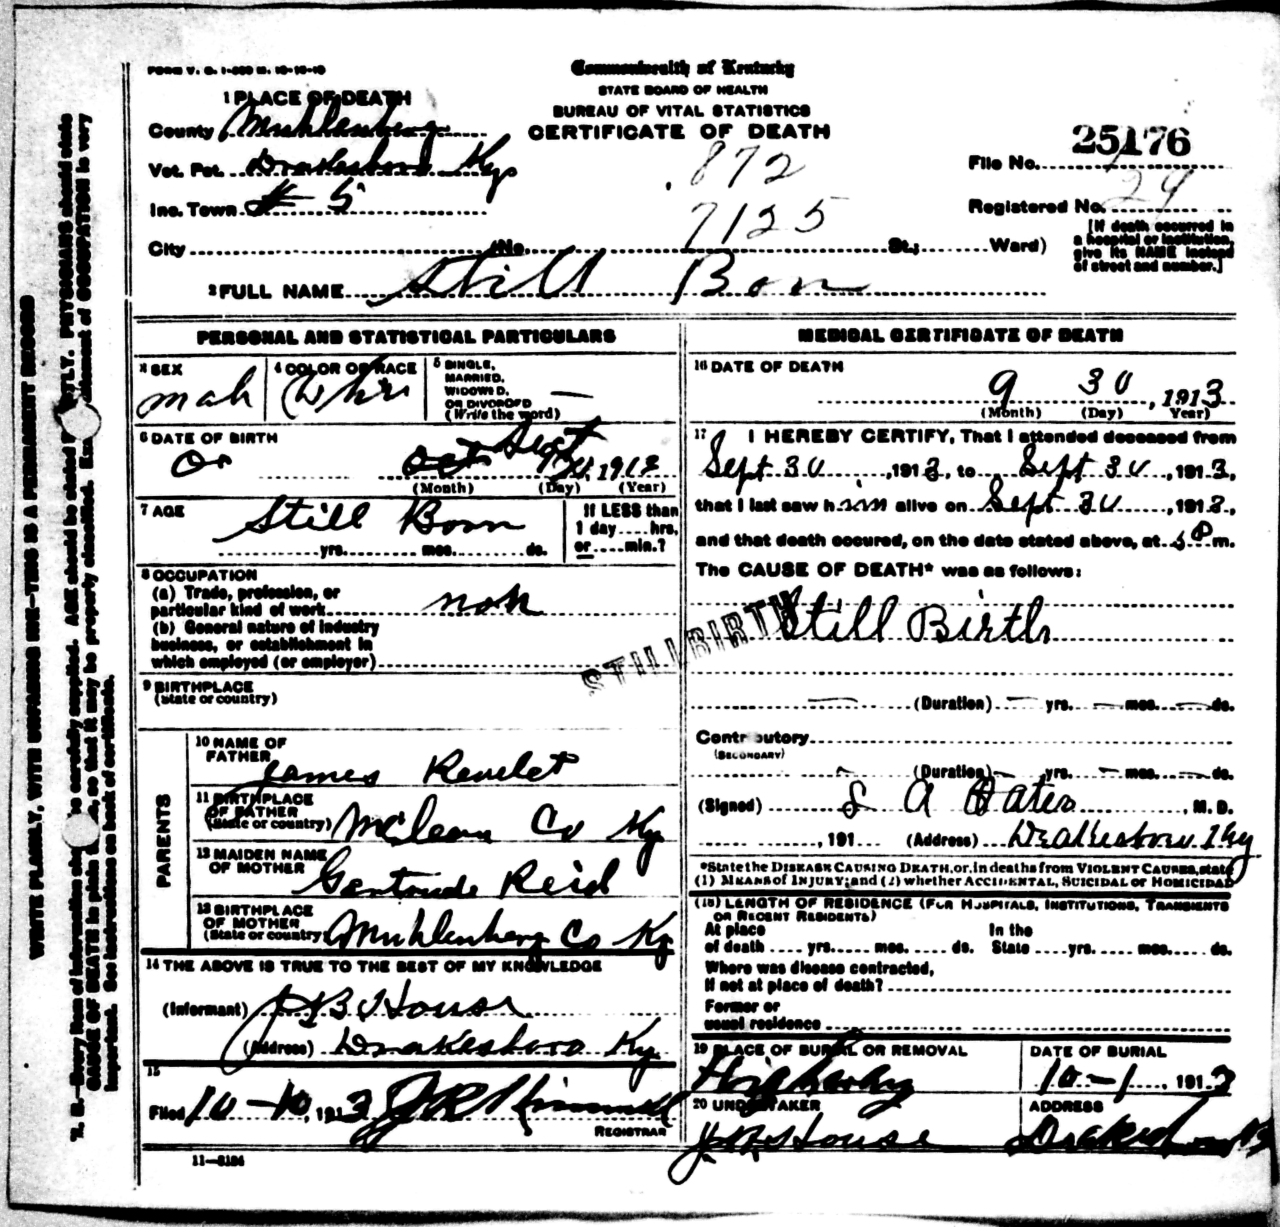 FORM V. S. 1-
Commonwealth of Kentucky
STATE BOARD OF HEALTH
BUREAU OF VITAL STATISTICS
CERTIFICATE OF DEATH
1 PLACE OF DEATH
County Muhlenberg
Vot. Pct. Drakesboro Ky
Inc. Town # 5
City No. St.; Ward)
872
7125
File No. 25176
Registered No. 29
[If death occurred in
a hospital or institution,
give its NAME instead
of street and number.]
2 FULL NAME Still Born
PERSONAL AND STATISTICAL PARTICULARS
3 SEX
mah
4 COLOR OR RACE
Whi
5 SINGLE,
MARRIED,
WIDOWED,
OR DIVORCED
(Write the word) —
6 DATE OF BIRTH
Oct Sept
, 1913
(Month) (Day) (Year)
7 AGE Still Born
yrs. mos. ds.
If LESS than
1 day....hrs.
or....min.?
8 OCCUPATION
(a) Trade, profession, or
particular kind of work non
(b) General nature of industry
business, or establishment in
which employed (or employer)
9 BIRTHPLACE
(State or country)
PARENTS
10 NAME OF
FATHER James
11 BIRTHPLACE
OF FATHER
(State or country) McLean Co Ky
12 MAIDEN NAME
OF MOTHER Gertrude Reid
13 BIRTHPLACE
OF MOTHER
(State or country) Muhlenberg Co Ky
14 THE ABOVE IS TRUE TO THE BEST OF MY KNOWLEDGE
(Informant) J B House
(Address) Drakesboro Ky
15
Filed 10-10, 1913 J R Kimmel
REGISTRAR
11-3184
MEDICAL CERTIFICATE OF DEATH
16 DATE OF DEATH
9 30, 1913
(Month) (Day) (Year)
17 I HEREBY CERTIFY, That I attended deceased from
Sept 30, 1913, to Sept 30, 1913,
that I last saw him alive on Sept 30, 1913,
and that death occured, on the date stated above, at 5 P m.
The CAUSE OF DEATH* was as follows:
STILLBIRTH
Still Birth
(Duration) — yrs. — mos. — ds.
Contributory
(SECONDARY)
(Duration) — yrs. — mos. — ds.
(Signed) A Oates, M. D.
, 191 (Address) Drakesboro Ky
*State the DISEASE CAUSING DEATH, or, in deaths from VIOLENT CAUSES, state
(1) MEANS of INJURY; and (2) whether ACCIDENTAL, SUICIDAL or HOMICIDAL
(18) LENGTH OF RESIDENCE (FOR HOSPITALS, INSTITUTIONS, TRANSIENTS
OR RECENT RESIDENTS)
At place In the
of death .... yrs. .... mos. .... ds. State .... yrs. .... mos. .... ds.
Where was disease contracted,
If not at place of death?
Former or
usual residence
19 PLACE OF BURIAL OR REMOVAL
DATE OF BURIAL
10-1, 1913
20 UNDERTAKER
J B House
ADDRESS
Drakesboro Ky
WRITE PLAINLY, WITH UNFADING INK—THIS IS A PERMANENT RECORD
N. B.—Every item of information should be carefully supplied. AGE should be stated EXACTLY. PHYSICIANS should state
CAUSE OF DEATH in plain terms, so that it may be properly classified. Exact statement of OCCUPATION is very
important. See instructions on back of certificate.